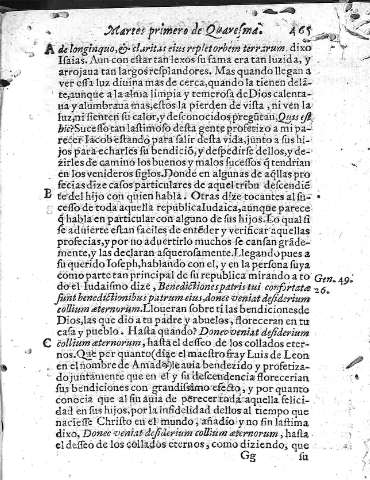 Martes primero de Quaresma. 465
A de longinquo, & claritas eius repletorbem terrarum. dixo
Isaias. Aun con estar tan lexos su fama era tan luzida, y
arrojaua tan largos resplandores. Mas quando llegan a
ver essa luz diuina mas de cerca, quando la tienen delã
te, aunque a la alma limpia y temerosa de Dios calenta-
ua y alumbraua mas, estos la pierden de vista, ni ven la
luz, ni sienten su calor, y desconocidos pregũtan. Quis est
hic? Sucesso tan lastimoso desta gente profetizo a mi pa
recer Iacob estando para salir desta vida, junto a sus hi-
jos para echarles su bendiciõ, y despedirse dellos, y de-
zirles de camino los buenos y malos sucessos q̃ tendrian
en los venideros siglos. Donde en algunas de aq̃llas pro
fecias dize casos particulares de aquel tribu descendiẽ
B te del hijo con quien habla. Otras dize tocantes al su-
cesso de toda aquella republica Iudaica, aunque parece
q̃ habla en particular con alguno de sus hijos. Lo qual si
se aduierte estan faciles de enteder y verificar aquellas
profecias, y por no aduertirlo muchos se cansan grãde-
mente, y las declaran asquerosamente. Llegando pues a
su querido Ioseph, hablando con el, y en la persona suya
como parte tan principal de su republica mirando a to
do el Iudaismo dize, Benedictiones patris tui confortatæ
sunt benedictionibus patrum eius, donec veniat desiderium
Gen. 49.
26.
collium æternorum. Lloueran sobre ti las bendiciones de
Dios, las que dio a tu padre y abuelos, floreceran en tu
casa y pueblo. Hasta quando? Donec veniat desiderium
C collium æternorum, hasta el desseo de los collados eter-
nos. Que por quanto (dize el maestro fray Luis de Leon
en el nombre de Amado) le auia bendezido y profetiza-
do juntamente que en el y su descendencia florecerian
sus bendiciones con grandissimo efecto, y por quanto
conocia que al fin auia de perecer toda aquella felici-
dad en sus hijos, por la infidelidad dellos al tiempo que
naciesse Christo en el mundo, añadio y no sin lastima
dixo, Donec veniat desiderium collium æternorum, hasta
el desseo de los collados eternos, como diziendo, que
Gg su